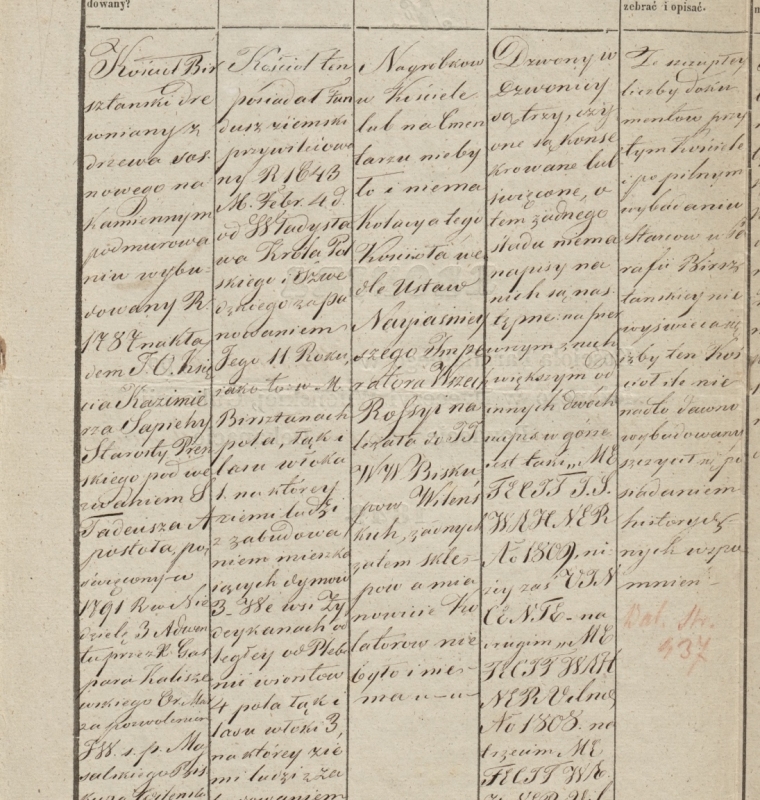 dowany?
zebrać i opisać.
Kościoł Bir
sztanski dre
wniany z
drzewa sos
nowego na
kamiennym
podmurowa
niu wybu-
dowany R.
1787 nakła
dem J. O. Xię
cia Kazimie
rza Sapiehy
Starosty Pren
skiego pod we
zwaniem S
Tadeusza A
postoła, po
święcony w
1791 R w Nie
dzielę 3 Adwen
tu przez X. Gas
para Kalisze
wskiego
za pozwoleniem
JW. s. p. Ma
salskiego Bis
kupa
Kościoł ten
posiadał Fun
dusz ziemski
przywileiowa
ny R 1643
M. Febr. 4 d.
od Władysła
wa Króla Pol
skiego i Szwe
dzkiego za pa
nowaniem
Jego 11 Roku,
jako to: w M.
Birsztanach
pola, łąk i
lasu włoka
1. na którey
ziemi ludzi
z zabudowa
niem mieszka
iących dymow
3. We wsi Zy
deykanach od
ległey od Pleba
nii wiorstow
4 pola łąk i
lasu włoki 3,
na którey zie
mi ludzi z za
budowaniem
Nagrobkow
w Kościele
lub na Cmen
tarzu nieby
ło i niema
Kolacya tego
Kościoła we
dle Ustaw
Nayiaśniey
szego Impe
ratora Wszech
Rossyi na
leżała do JJ.
WW Bisku
pow Wileńs
kich, żadnych
zatem skle-
pow a mia
nowicie Ko
latorow nie
było i nie-
ma
Dzwony w
Dzwonicy
są trzy, czy
one są konse
krowane lub
święcone, o
tem żadnego
śladu niema
napisy na
nich są nas
tępne: na pier
wszym z nich
większym od
innych dwóch
napis w gorze
iest taki „ME
FECIT J.S.
WAHNER
No 1809, ni
żey zaś VIN
CENTE - na
drugim „ME
FECIT WAH
NER Vilna
No 1808. na
trzecim ME
FECIT WA
HNER Vil
Ze szczupłey
liczby doku
mentow przy
tym Kościele
i po pilnym
wybadaniu
Starcow w Pa
rafii Birsz
tańskiey nie
wyświeca się
iżby ten Koś
cioł ile nie
nadto dawno
wybudowany
szczycił się po
siadaniem
historycz-
nych wspo
mnień.
Dal. Str.
937